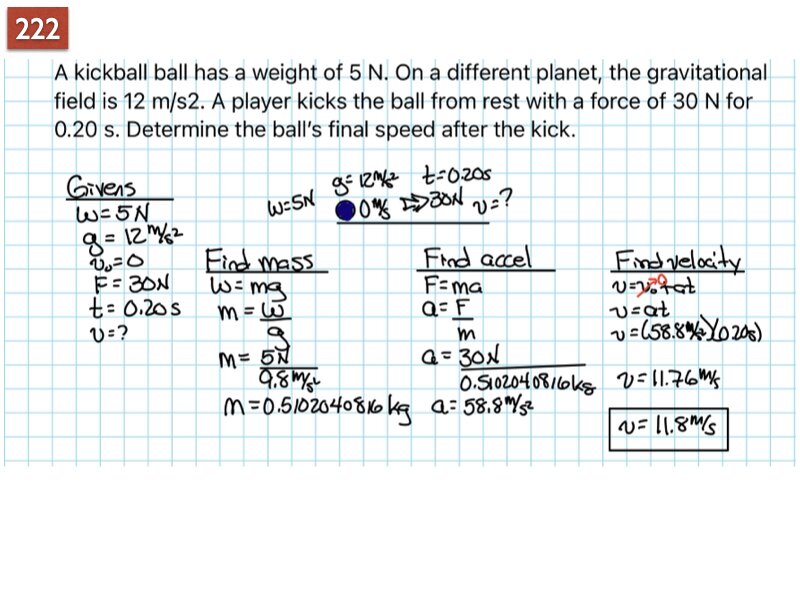 222
A kickball ball has a weight of 5 N. On a different planet, the gravitational
field is 12 m/s2. A player kicks the ball from rest with a force of 30 N for
0.20 s. Determine the ball's final speed after the kick.
Givens
W=5N
g=12 m/s²
v₀=0
F=30N
t=0.20s
v=?
W=5N
g=12 m/s² t=0.20s
0 m/s ⇒30N v=?
Find mass
W=mg
m=W/g
m=5N/9.8 m/s²
m=0.5102040816 kg
Find accel
F=ma
a=F/m
a=30N/0.5102040816kg
a=58.8 m/s²
Find velocity
v=v₀+at
0
v=at
v=(58.8 m/s²)(0.20s)
v=11.76 m/s
v=11.8 m/s